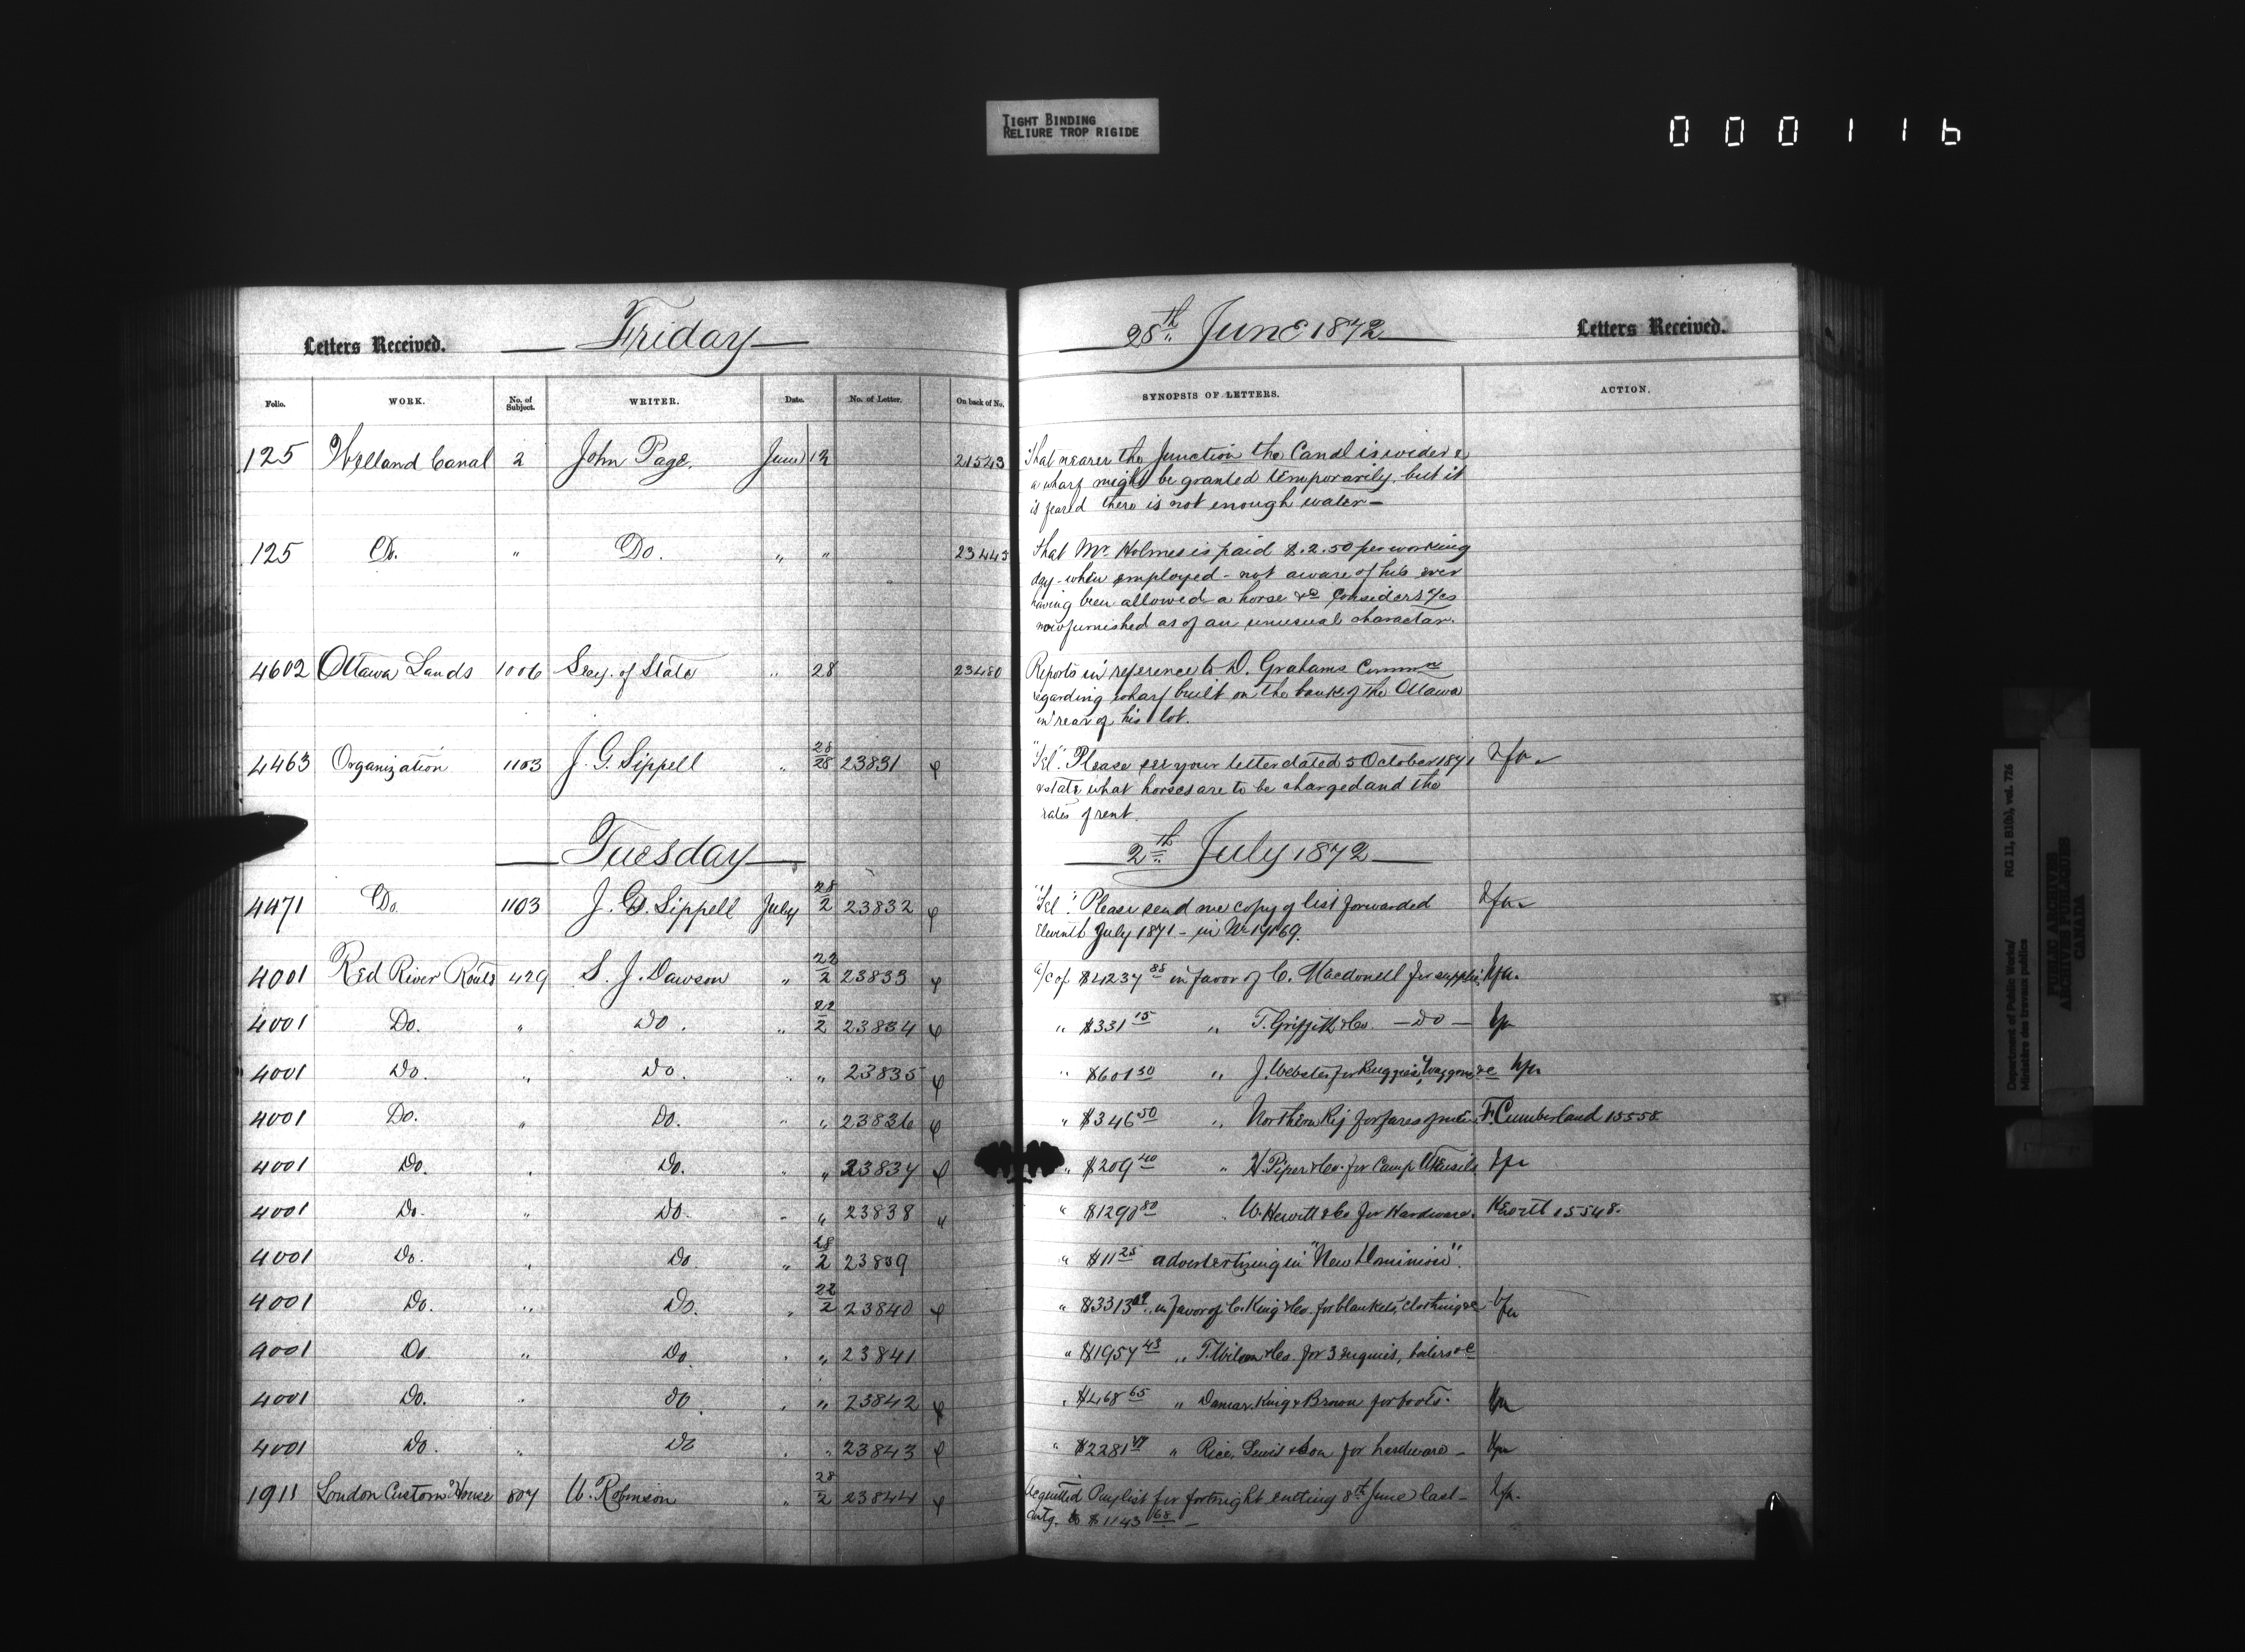 TIGHT BINDING
RELIURE TROP RIGIDE
000116
Letters Received. Friday 28th June 1872 Letters Received.
Folio. WORK. No. of Subject. WRITER. Date. No. of Letter. On back of No. SYNOPSIS OF LETTERS. ACTION.
125 Welland Canal 2 John Page. June 12 21543 That nearer the Junction the Canal is wider &
a wharf might be granted temporarily, but it
is feared there is not enough water —
125 Do. " Do. " " 23445 That Mr Holmes is paid $2.50 per working
day - when employed - not aware of his ever
having been allowed a horse &c Considers
now furnished as of an unusual character.
4602 Ottawa Lands 1006 Secy. of State " 28 23480 Reports in reference to D. Grahams Commn
regarding wharf built on the bank of the Ottawa
in rear of his lot.
4463 Organization 1103 J. G. Sippell " 28/28 23831 "Tel". Please see your letter dated 5 October 1871
& state what horses are to be charged and the
rates of rent.
Tuesday 2th July 1872
4471 Do. 1103 J. G. Sippell July 28/2 23832 "Tel". Please send me copy of list forwarded
Eleventh July 1871 - in No 19169.
4001 Red River Route 429 S. J. Dawson " 22/2 23833 a/c of $4237 88 in favor of C. Macdonell for supplies
4001 Do. " Do. " 22/2 23834 " $331 15 " T. Griffith & Co. — Do —
4001 Do. " Do. " " 23835 " $601 50 " J. Webster for Buggies, Waggons &c
4001 Do. " Do. " " 23836 " $346 50 " Northern Ry for fares of men F. Cumberland 15558
4001 Do. " Do. " " 23837 " $209 40 " H. Piper & Co. for Camp Utensils
4001 Do. " Do. " " 23838 " " $1290 80 W. Hewitt & Co for Hardware. 15548.
4001 Do. " Do " 28/2 23839 " $11 25 advertertising in "New Dominion".
4001 Do. " Do. " 22/2 23840 " $3313 09 in favor of C. King & Co. for blankets, clothing &c
4001 Do. " Do " " 23841 " $1957 43 " T. Wilson & Co. for 3 engines, boilers &c
4001 Do. " Do. " " 23842 " $468 65 " Damar, King & Brown for boots.
4001 Do. " Do " " 23843 " $2281 " Rice, Lewis & Son for hardware —
1911 London Custom House 807 W. Robinson " 28/2 23844 Acquitted Paylist for fortnight ending 8th June last —
Amtg. to $1143 68 —
Department of Public Works/
Ministère des travaux publics
RG 11, B1(b), vol. 726
PUBLIC ARCHIVES
ARCHIVES PUBLIQUES
CANADA